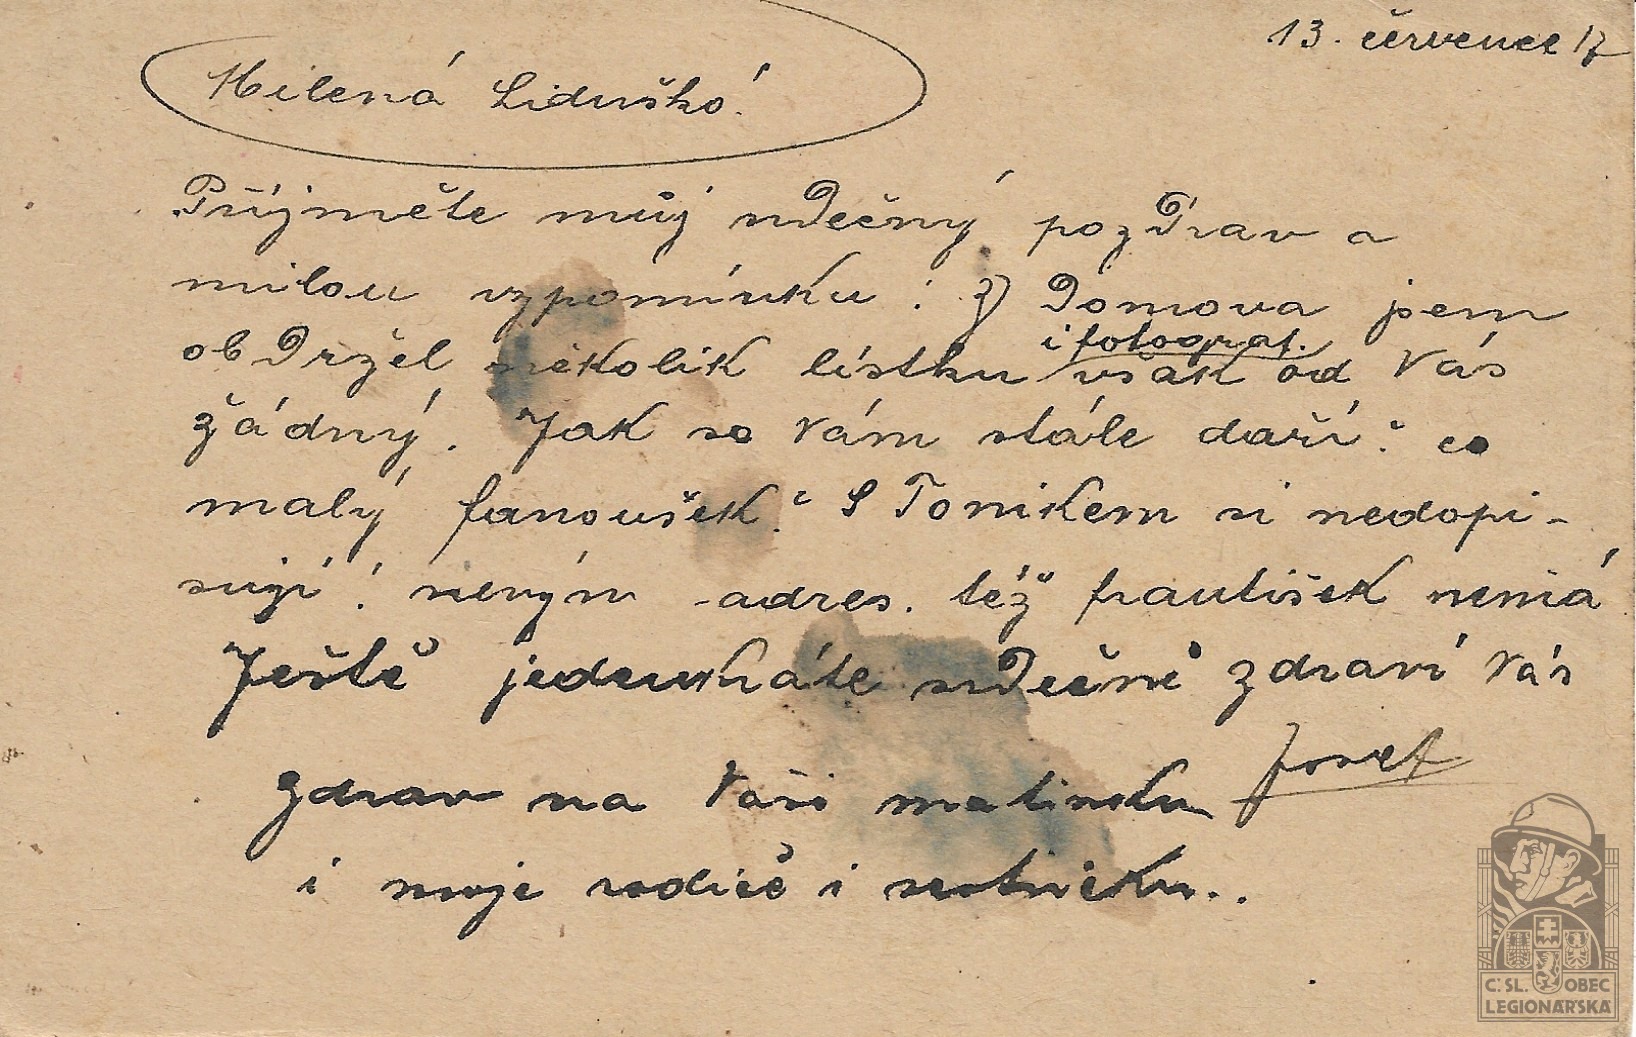 13. července 17
Milená Liduškó!
Přijměte můj vděčný pozdrav a
milou vzpomínku! Z Domova jsem
obdržel několik lístku však od Vás
i fotograf.
žádný. Jak se Vám stále daří? co
malý fanoušek? S Toníkem si nedopi-
sují! nevým adres. též František nemá
Ještě jedenkráte vděčně zdraví Vás
Josef
zdrav na Vaši matinku
i moje rodiče i
Č. SL. OBEC
LEGIONÁŘSKÁ